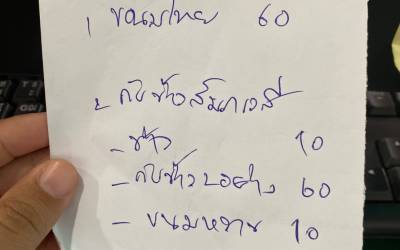 1 ขนมไทย 60
2 กับข้าวสัมภเวสี
- ข้าว 10
- กับข้าว 2 อย่าง 60
- ขนมหวาน 10